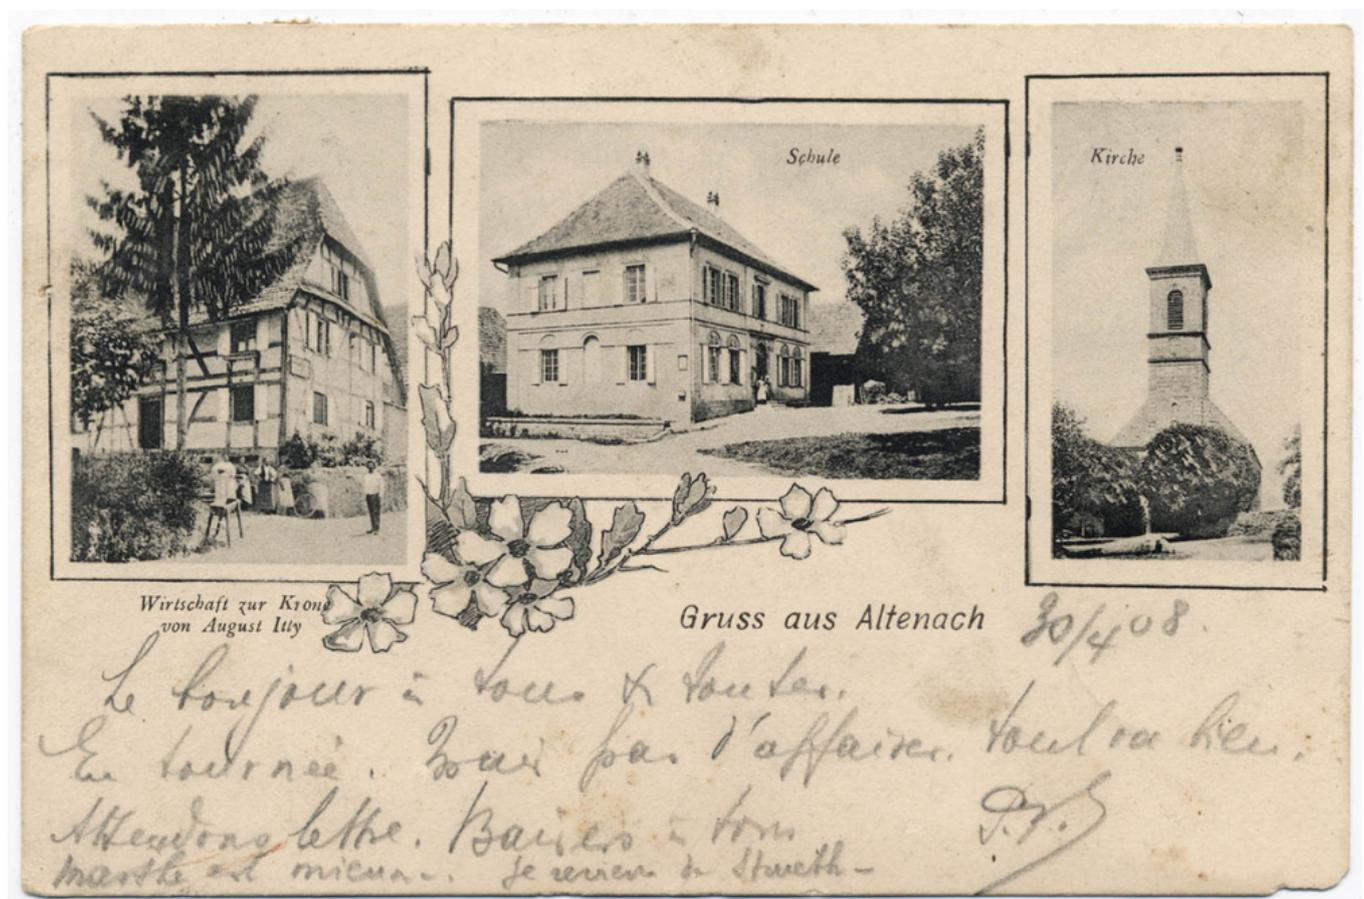 Schule
Kirche
Wirtschaft zur Krone
von August Itty
Gruss aus Altenach
30/4 08.
Le bonjour à tous & toutes.
En tournée. Mais pas d'affaires. tout va bien.
Attendons lettre. Baisers à tous
Marthe est mieux. Je reviens de